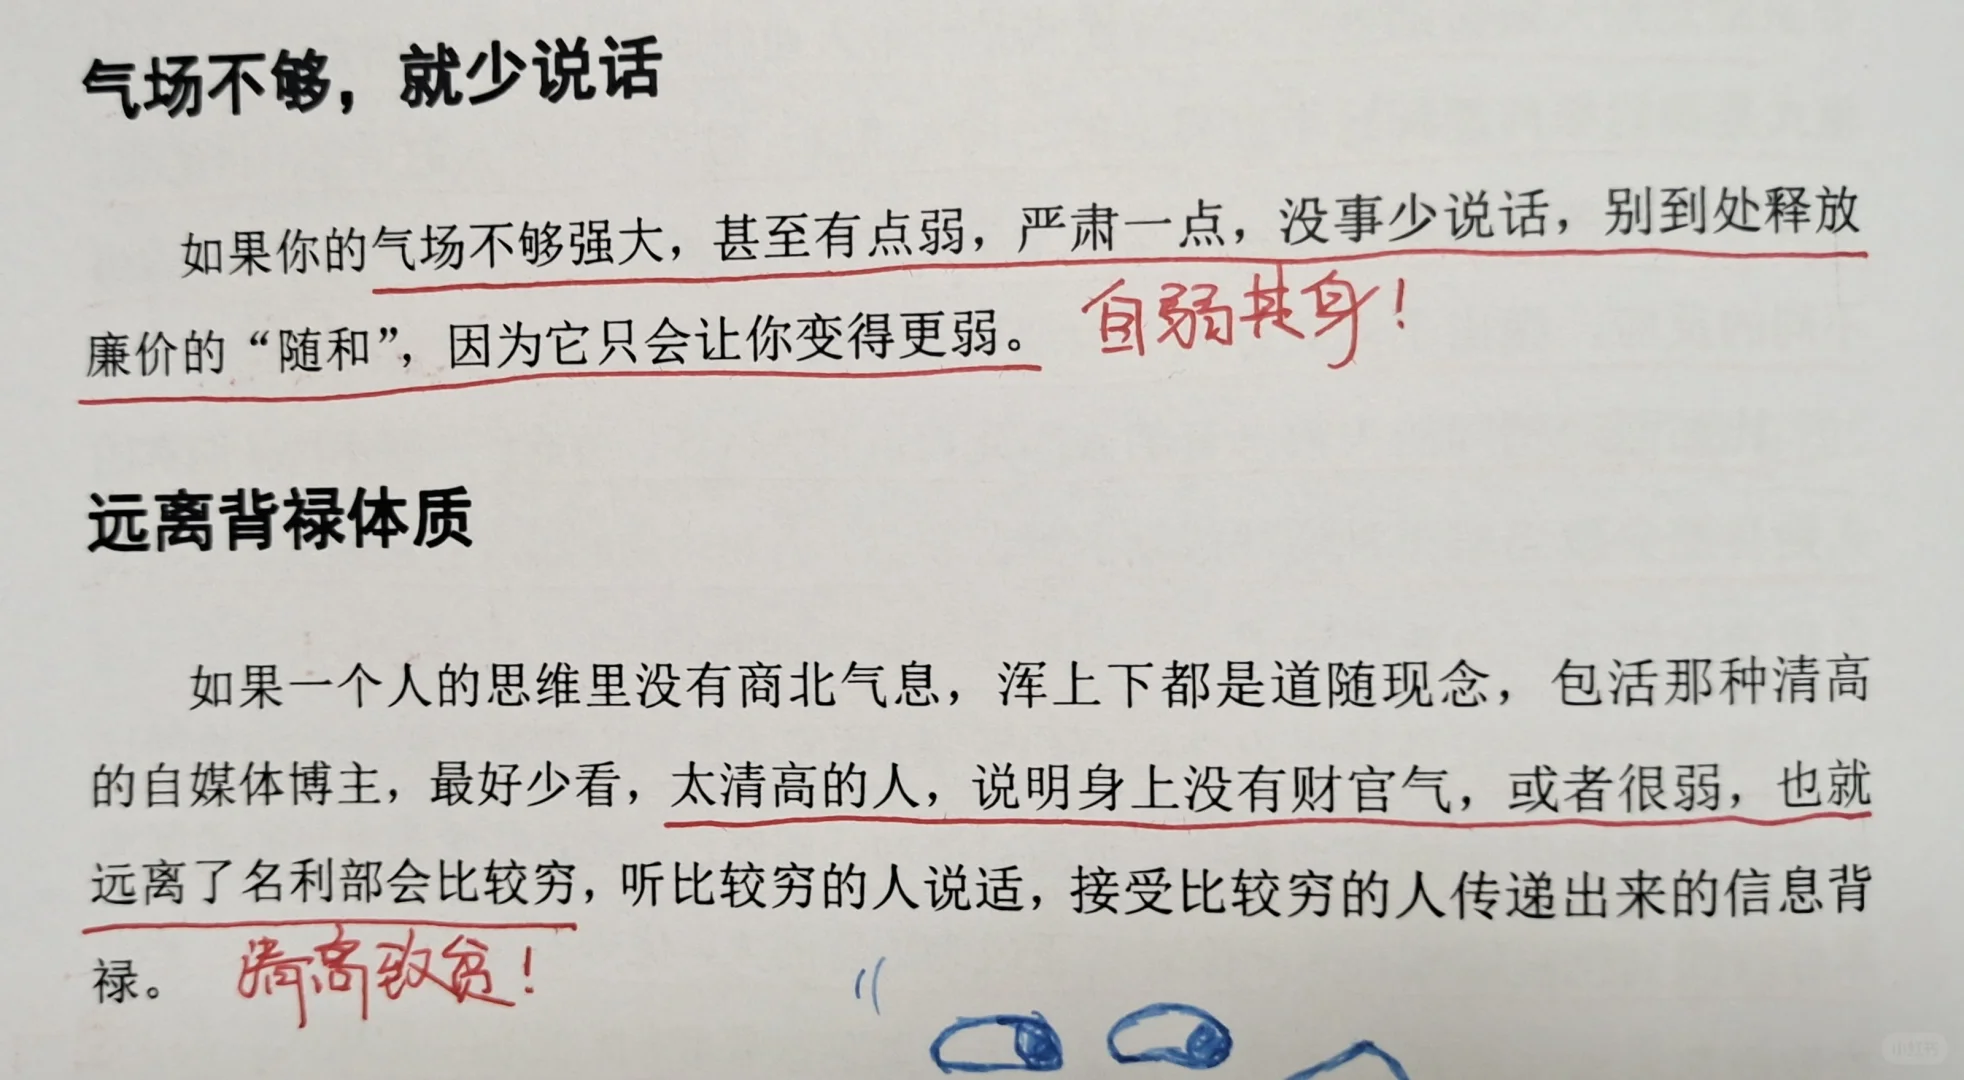 气场不够，就少说话
如果你的气场不够强大，甚至有点弱，严肃一点，没事少说话，别到处释放
廉价的“随和”，因为它只会让你变得更弱。 自弱其身！
远离背禄体质
如果一个人的思维里没有商北气息，浑上下都是道随现念，包活那种清高
的自媒体博主，最好少看，太清高的人，说明身上没有财官气，或者很弱，也就
远离了名利部会比较穷，听比较穷的人说适，接受比较穷的人传递出来的信息背
禄。 清高致贫！
小红书